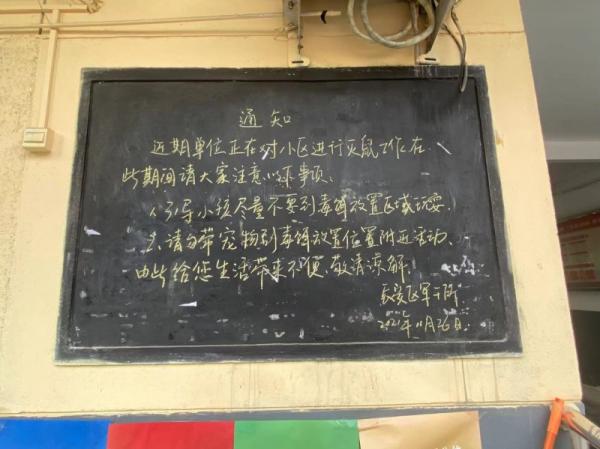 通知
近期单位正在对小区进行灭鼠工作在
此期间请大家注意以下事项、
1、引导小孩尽量不要到毒饵放置区域玩耍.
2、请勿带宠物到毒饵放置位置附近活动、
由此给您生活带来不便.敬请谅解.
军干所
11月26日.